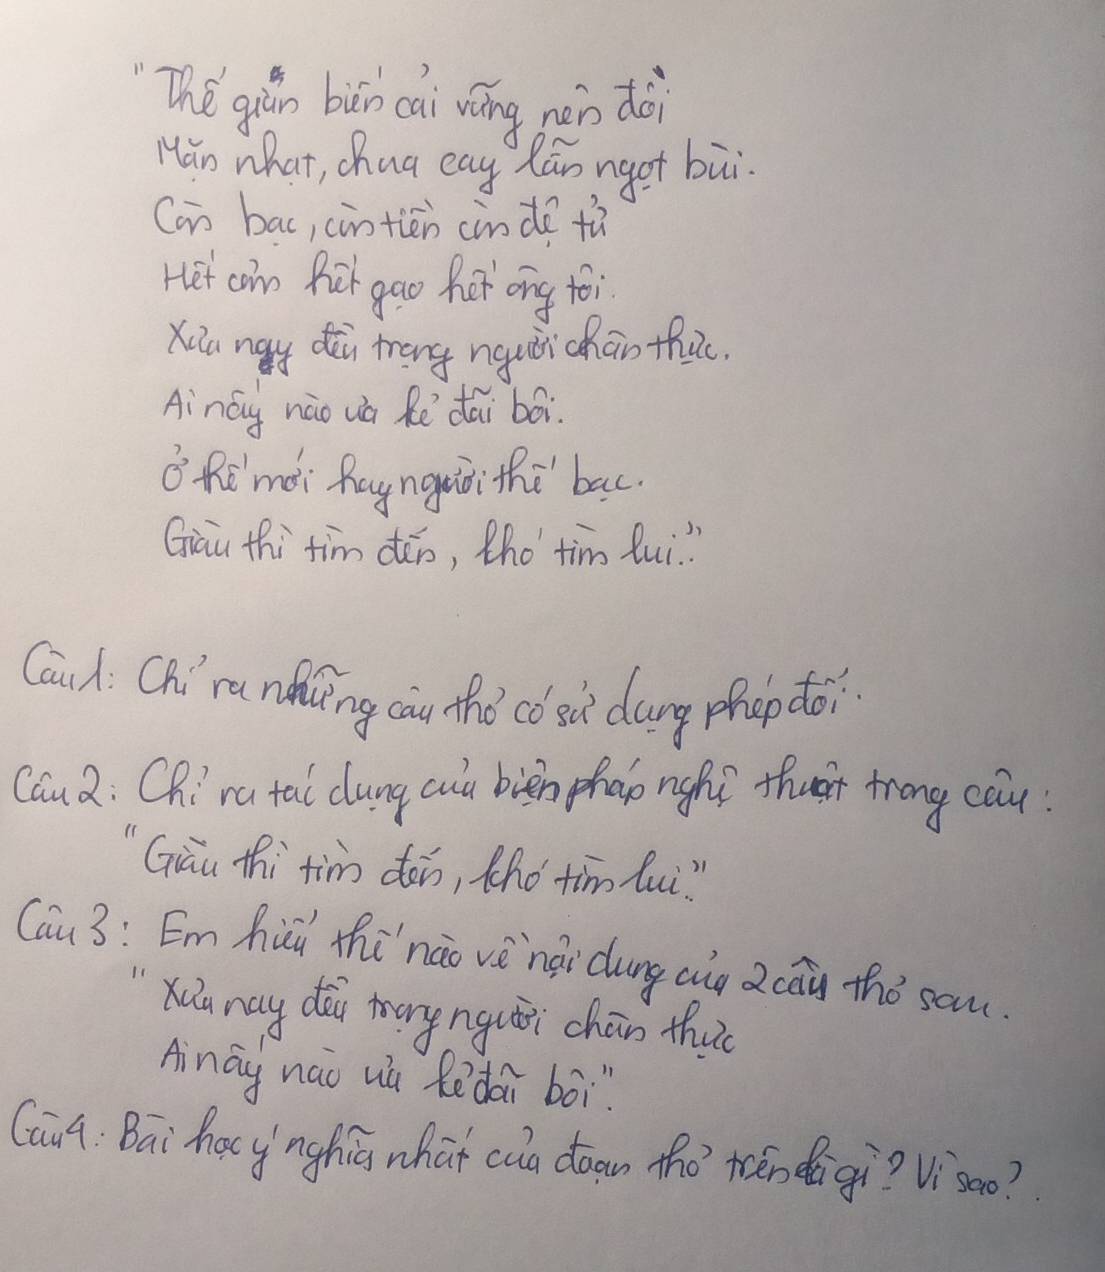 "Thế gian biến cải vũng nên đồi
Mặn nhạt, chua cay lẫn ngọt bùi.
Còn bạc, còn tiền còn đệ tử
Hết cơm hết gạo hết ông tôi.
Xưa nay đều trọng người chân thực.
Ai nấy nào ưa kẻ đãi bôi.
Ở thế mới hay người thế bạc.
Giàu thì tìm đến, khó tìm lui."
Câu 1: Chỉ ra những câu thơ có sử dụng phép đối.
Câu 2: Chỉ ra tác dụng của biện pháp nghệ thuật trong câu:
"Giàu thì tìm đến, khó tìm lui."
Câu 3: Em hiểu thế nào về nội dung của 2 câu thơ sau.
"Xưa nay đều trọng người chân thực
Ai nấy nào ưa kẻ đãi bôi".
Câu 4: Bài học ý nghĩa nhất của đoạn thơ trên là gì? Vì sao?.